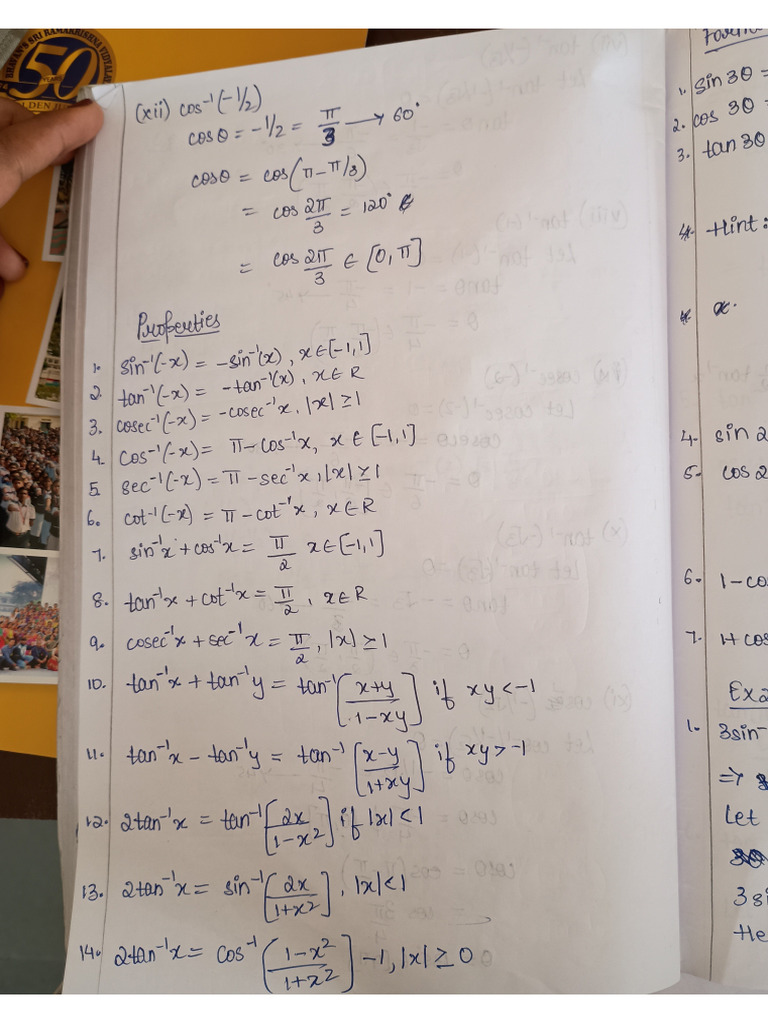 BHAVAN'S SRI RAMAKRISHNA VIDYALA
50
YEARS
OLDEN JU
(xii) cos⁻¹(-1/2)
cosθ = -1/2 = π/3 → 60°
cosθ = cos(π - π/3)
= cos 2π/3 = 120°
= cos 2π/3 ∈ [0, π]
Properties
1. sin⁻¹(-x) = -sin⁻¹(x), x∈[-1,1]
2. tan⁻¹(-x) = -tan⁻¹(x), x∈R
3. cosec⁻¹(-x) = -cosec⁻¹x, |x| ≥ 1
4. cos⁻¹(-x) = π - cos⁻¹x, x ∈ [-1,1]
5. sec⁻¹(-x) = π - sec⁻¹x, |x| ≥ 1
6. cot⁻¹(-x) = π - cot⁻¹x, x∈R
7. sin⁻¹x + cos⁻¹x = π/2 x∈[-1,1]
8. tan⁻¹x + cot⁻¹x = π/2, x∈R
9. cosec⁻¹x + sec⁻¹x = π/2, |x| ≥ 1
10. tan⁻¹x + tan⁻¹y = tan⁻¹[x+y/1-xy] if xy < -1
11. tan⁻¹x - tan⁻¹y = tan⁻¹[x-y/1+xy] if xy > -1
12. 2tan⁻¹x = tan⁻¹[2x/1-x²] if |x| < 1
13. 2tan⁻¹x = sin⁻¹[2x/1+x²], |x| < 1
14. 2tan⁻¹x = cos⁻¹(1-x²/1+x²] -1, |x| ≥ 0
1. sin3θ =
2. cos 3θ =
3. tan3θ
4. Hint:
* x.
4. sin 2
5. cos 2
6. 1-co
7. 1+cos
Exa
1. 3sin⁻
⇒
Let
3si
He